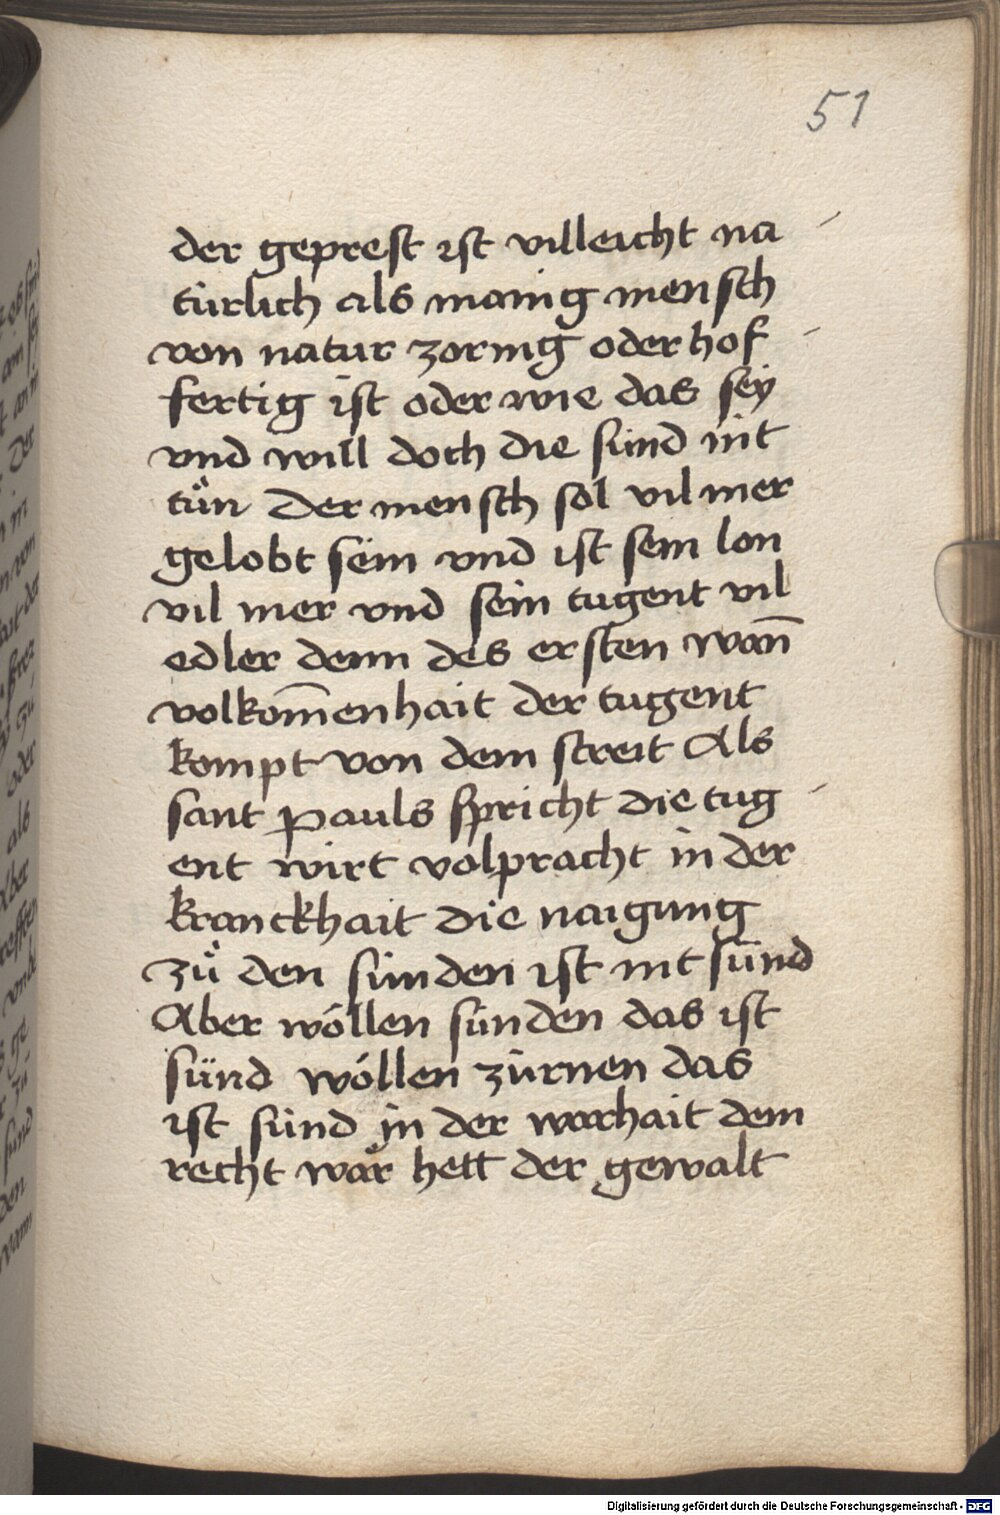 51
der geprest ist villeicht na
türlich als manig mensch
von natur zornig oder hof
fertig ist oder wie das sey
vnd will doch die sünd nit
tůn Der mensch sol vil mer
gelobt sein vnd ist sein lon
vil mer vnd sein tugent vil
edler denn des ersten wan̄
volkom̄enhait der tugent
kompt von dem streit Als
sant Pauls spricht die tug
ent wirt volpracht in der
kranckhait die naigung
zů den sünden ist nit sünd
Aber wöllen sünden das ist
sünd wöllen zürnen das
ist sünd in der warhait dem
recht wär hett der gewalt
Digitalisierung gefördert durch die Deutsche Forschungsgemeinschaft - DFG